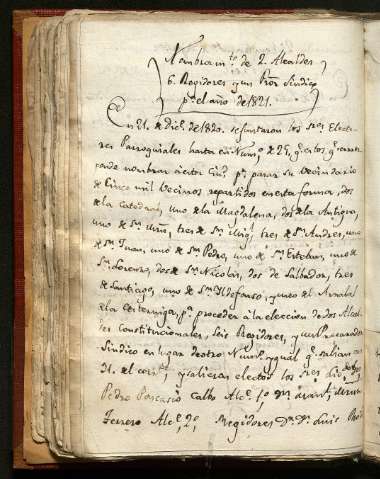 Nombram.to de 2. Alcaldes
6. Regidores y un Pror. Sindico
p.a el año de 1821.
En 21. de Dic.e de 1820. se juntaron los sres Electo-
res Parroquiales hasta en Num.o de 25, q.e es los q.e corres-
ponde nombrar a esta Ciu.d p.r pasar su Vecindario
de Cinco mil Vecinos repartidos en esta forma, dos
de la Catedral, uno de la Magdalena, dos de la Antigua,
uno de S.n tres de S.n Mig.l tres de S.n Andres, uno
de S.n Juan, uno de S.n Pedro, uno de S.n Esteban, uno de
S.n Lorenzo, dos de S.n Nicolas, dos de Salvador, tres
de Santiago, uno de S.n Ildefonso, y uno del Arrabal
de la p.a proceder a la eleccion de dos Alcal-
des Constitucionales, seis Regidores, y un Procurador
Sindico en lugar de otro Num.o ygual q.e salian en
31. del corr.te, y salieron electos los sres
Pedro Pascasio Calbo Alc.e 1.o
Ferrero Alc.e 2.o, Regidores D.n D.n Luis